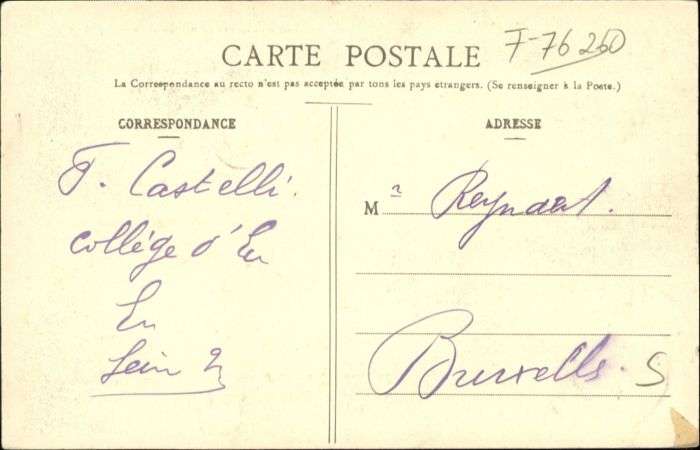 F-76 260
CARTE POSTALE
La Correspondance au recto n'est pas acceptée par tous les pays étrangers. (Se renseigner à la Poste.)
CORRESPONDANCE
ADRESSE
F. Castelli.
collège d'Eu
Eu
Sein Ire
Mr Reyndaert.
Bruxelles. S